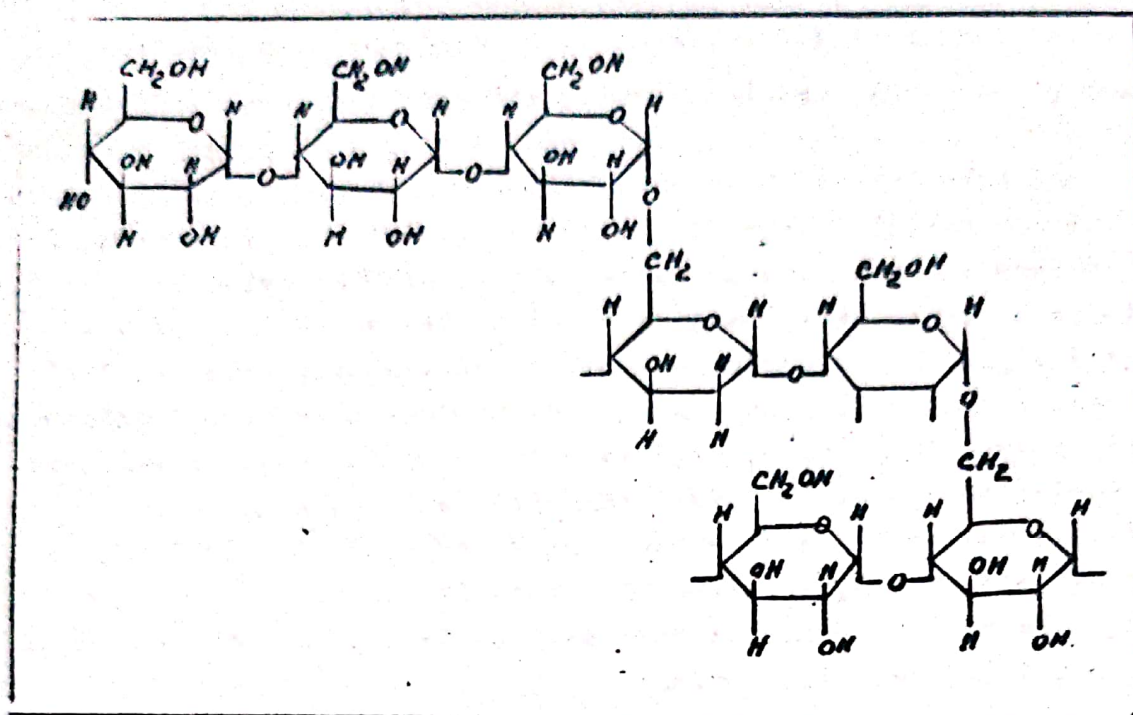 CH2OH CH2OH CH2OH
H O H H O H H O H
OH H OH H OH H
HO O O O
H OH H OH H OH
CH2 CH2OH
H O H H O H
OH H O O
H H
CH2OH CH2
H O H H O H
OH H O OH H
H OH H OH